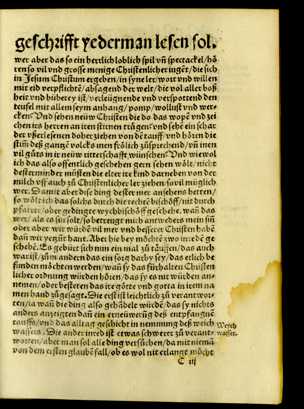 geschrifft yederman lesen sol.
wer aber das so ein herrlich loblich spil vñ spectackel / hö
ren so vil vnd grosse menige Christenlicher iuget / die sich
in Jesum Christum ergeben / in syne ler / wort vnd willen
mit eid verpflichte / absagend der welt / die vol aller boß
heit vnd bübery ist / verleügnende vnd verspottend den
teüfel mit allem seym anhang / pomp / wollust vnd wer
cken Vnd sehen neüw Christen die do das wopē vnd zei
chen irs herren an iren stirnen trügen vnd sehe ein schar
der vßerlesenen do her ziehen von dē tauff / vnd hören die
stim deß gantzē volcks men frölich zůsprechend / vñ inen
vil gůts in ir neüw ritterschafft wünschen Vnd wie wol
ich das also offentlich geschehen gern sehen wölt / nicht
destermind er müsten die elter ire kind darneben von der
milch vff auch zů Christenlicher ler ziehen / so vil müglich
wer. Damit aber dise ding dester mer ansehens hetten /
so wölt ich das solchs durch die rechtē bischöff / nit durch
pfarrer / oder gedingte wychbischöff geschehe. wañ das
wer / als es sin solt / so betreügt mich antweders mein siñ
oder aber wir würdē vil mer vnd besserer Christen habē
dañ wir yezūt hant. Aber hie by möchte vns inrede ge
schehē. Es gebürt sich nim ein mal zů teüffen / das auch
war ist / zům andern das ein sorg darby sey / das etlich be
funden möchten werden / wañ sy das fürhaltē Christen
licher ordnung würden hören / das sy es nit würden an
nemen / oder besteten das ire götte vnd gotta in irem na
men hand zůgesagt. Die erst ist leichtlich zů verantwor
ten / ja wañ die ding also gehālde würdē / das sy nichts
anders anzeigten dañ ein erneüwerūg deß entpfangnē
tauffs / vnd das alltag geschicht in nemmung deß weich
wassers. Die ander inred ist etwas schwerer zů verant-
worten / aber man sol alle ding versůchen / da mit niemā
von dem ersten glaubē fall / ob es wol nit erlangt möcht
C iij
Weych
wasser.